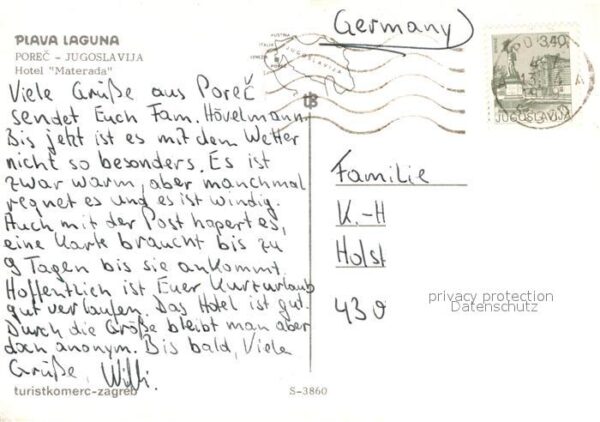 PLAVA LAGUNA
POREČ - JUGOSLAVIJA
Hotel "Materada"
Viele Grüße aus Poreč
sendet Euch Fam. Hövelmann.
Bis jetzt ist es mit dem Wetter
nicht so besonders. Es ist
zwar warm, aber manchmal
regnet es und es ist windig.
Auch mit der Post hapert es,
eine Karte braucht bis zu
9 Tagen bis sie ankommt.
Hoffentlich ist Euer Kurzurlaub
gut verlaufen. Das Hotel ist gut.
Durch die Größe bleibt man aber
doch anonym. Bis bald, Viele
Grüße, Willi.
turistkomerc-zagreb
S-3860
(Germany)
AUSTRIA
ITALIA
JUGOSLAVIJA
tb
3,40
JUGOSLAVIJA
Familie
K.-H
Holst
430
privacy protection
Datenschutz